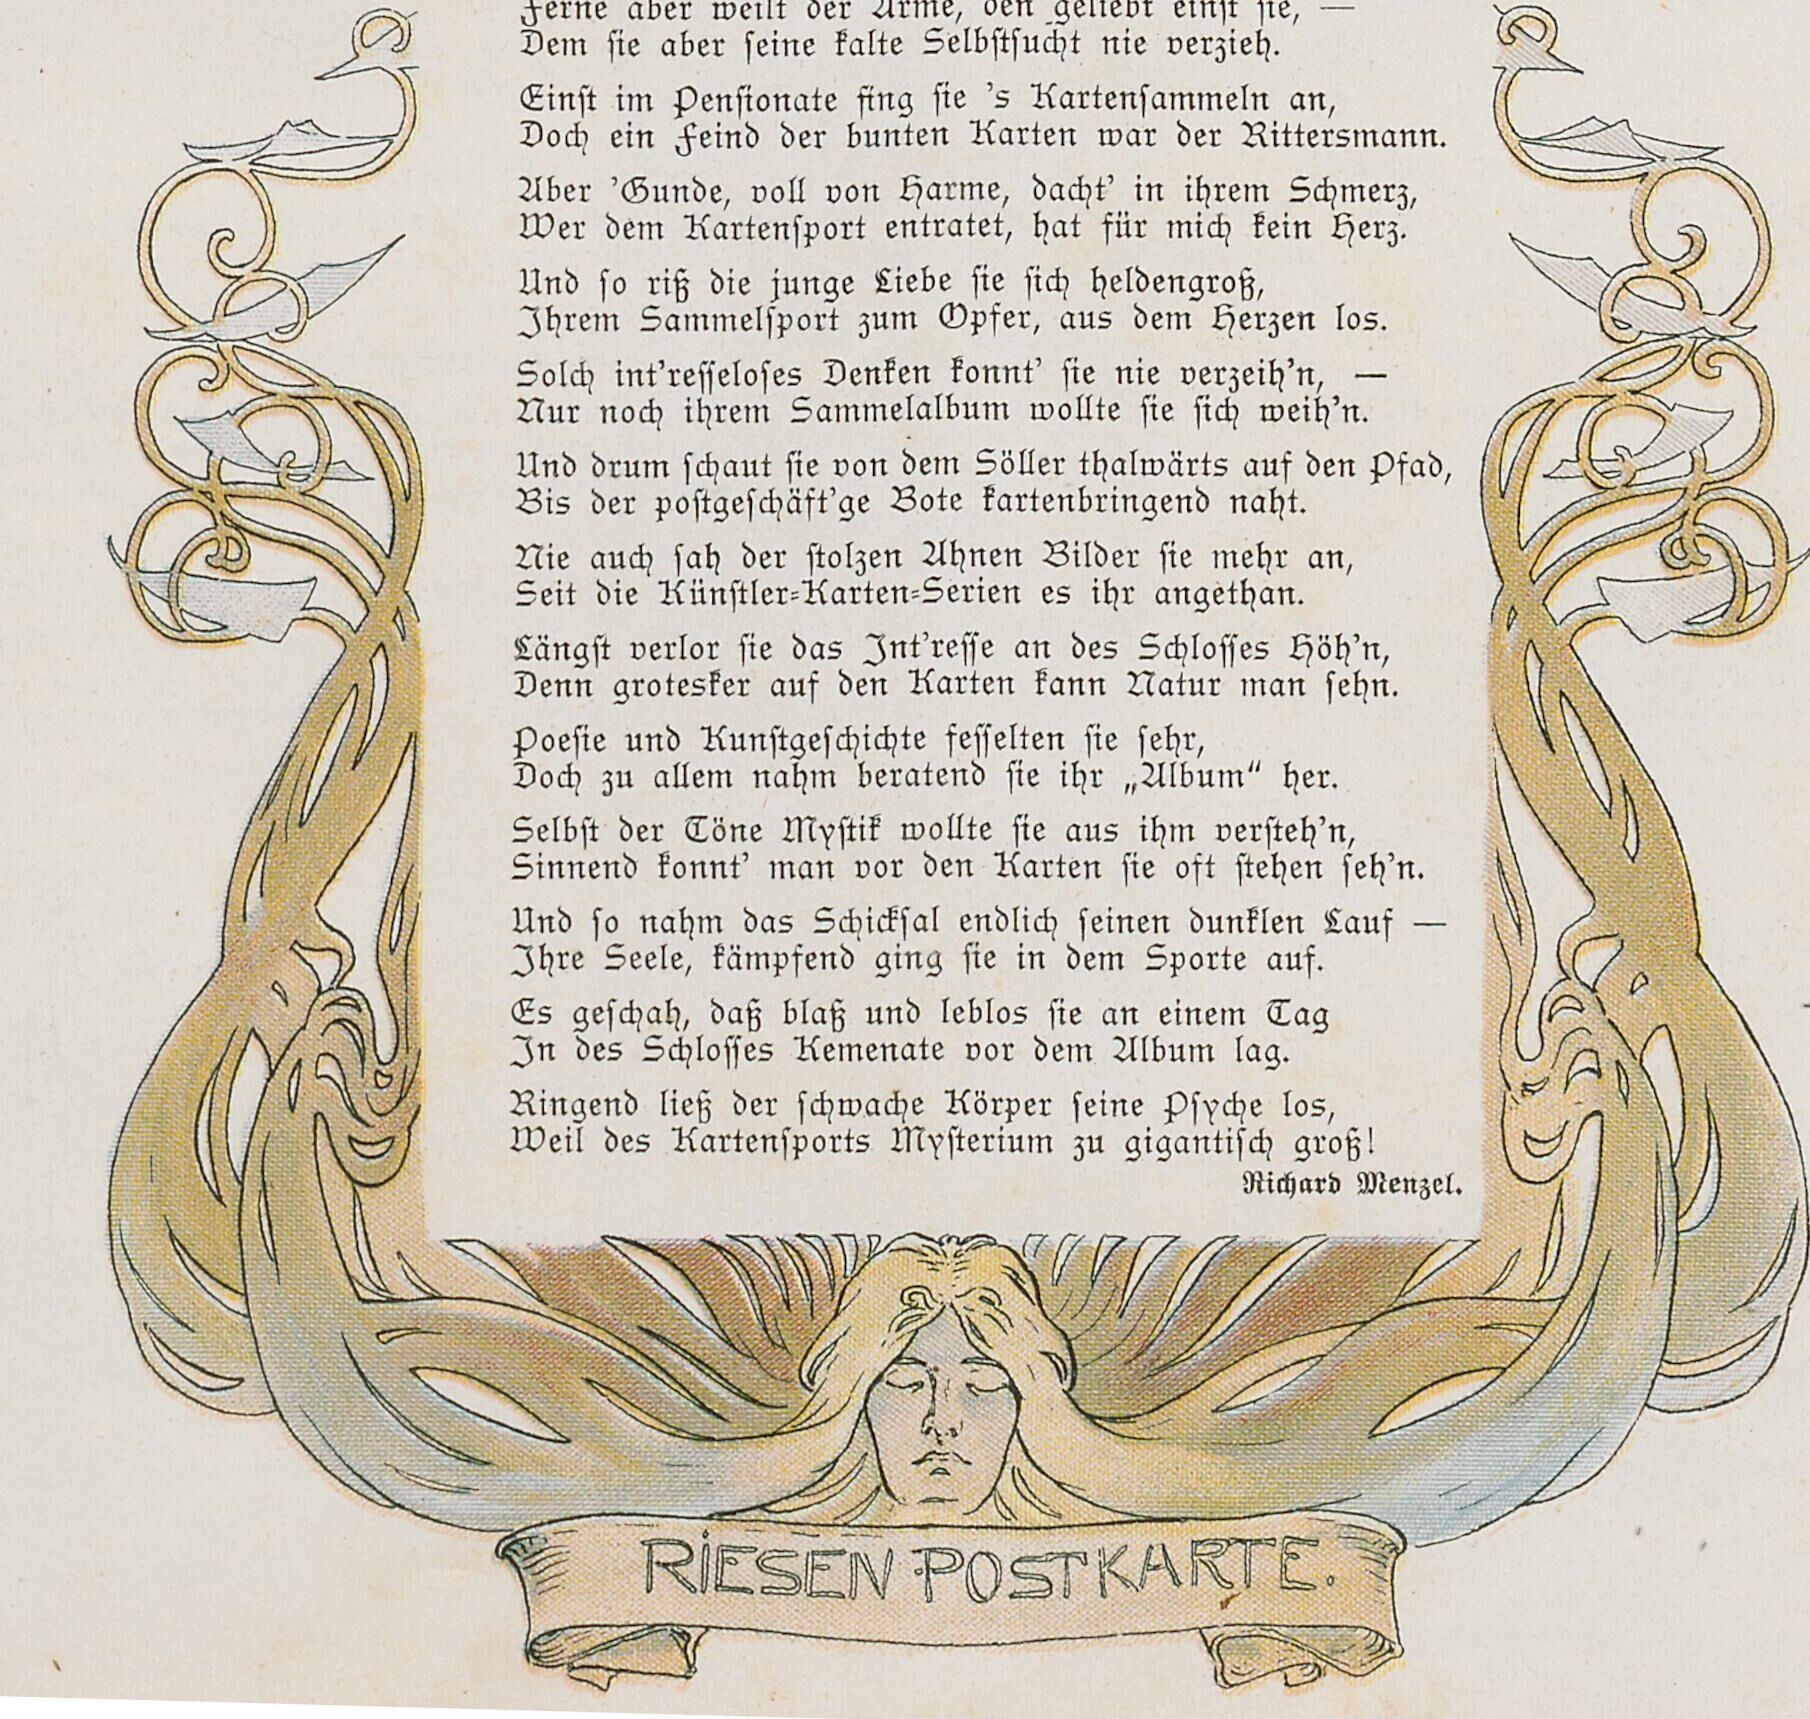 Ferne aber weilt der Arme, den geliebt einst sie, —
Dem sie aber seine kalte Selbstsucht nie verzieh.
Einst im Pensionate fing sie 's Kartensammeln an,
Doch ein Feind der bunten Karten war der Rittersmann.
Aber 'Gunde, voll von Harme, dacht' in ihrem Schmerz,
Wer dem Kartensport entratet, hat für mich kein Herz.
Und so riß die junge Liebe sie sich heldengroß,
Ihrem Sammelsport zum Opfer, aus dem Herzen los.
Solch int'resseloses Denken konnt' sie nie verzeih'n, —
Nur noch ihrem Sammelalbum wollte sie sich weih'n.
Und drum schaut sie von dem Söller thalwärts auf den Pfad,
Bis der postgeschäft'ge Bote kartenbringend naht.
Nie auch sah der stolzen Ahnen Bilder sie mehr an,
Seit die Künstler-Karten-Serien es ihr angethan.
Längst verlor sie das Int'resse an des Schlosses Höh'n,
Denn grotesker auf den Karten kann Natur man sehn.
Poesie und Kunstgeschichte fesselten sie sehr,
Doch zu allem nahm beratend sie ihr „Album“ her.
Selbst der Töne Mystik wollte sie aus ihm versteh'n,
Sinnend konnt' man vor den Karten sie oft stehen seh'n.
Und so nahm das Schicksal endlich seinen dunklen Lauf —
Ihre Seele, kämpfend ging sie in dem Sporte auf.
Es geschah, daß blaß und leblos sie an einem Tag
In des Schlosses Kemenate vor dem Album lag.
Ringend ließ der schwache Körper seine Psyche los,
Weil des Kartensports Mysterium zu gigantisch groß!
Richard Menzel.
RIESEN POSTKARTE.